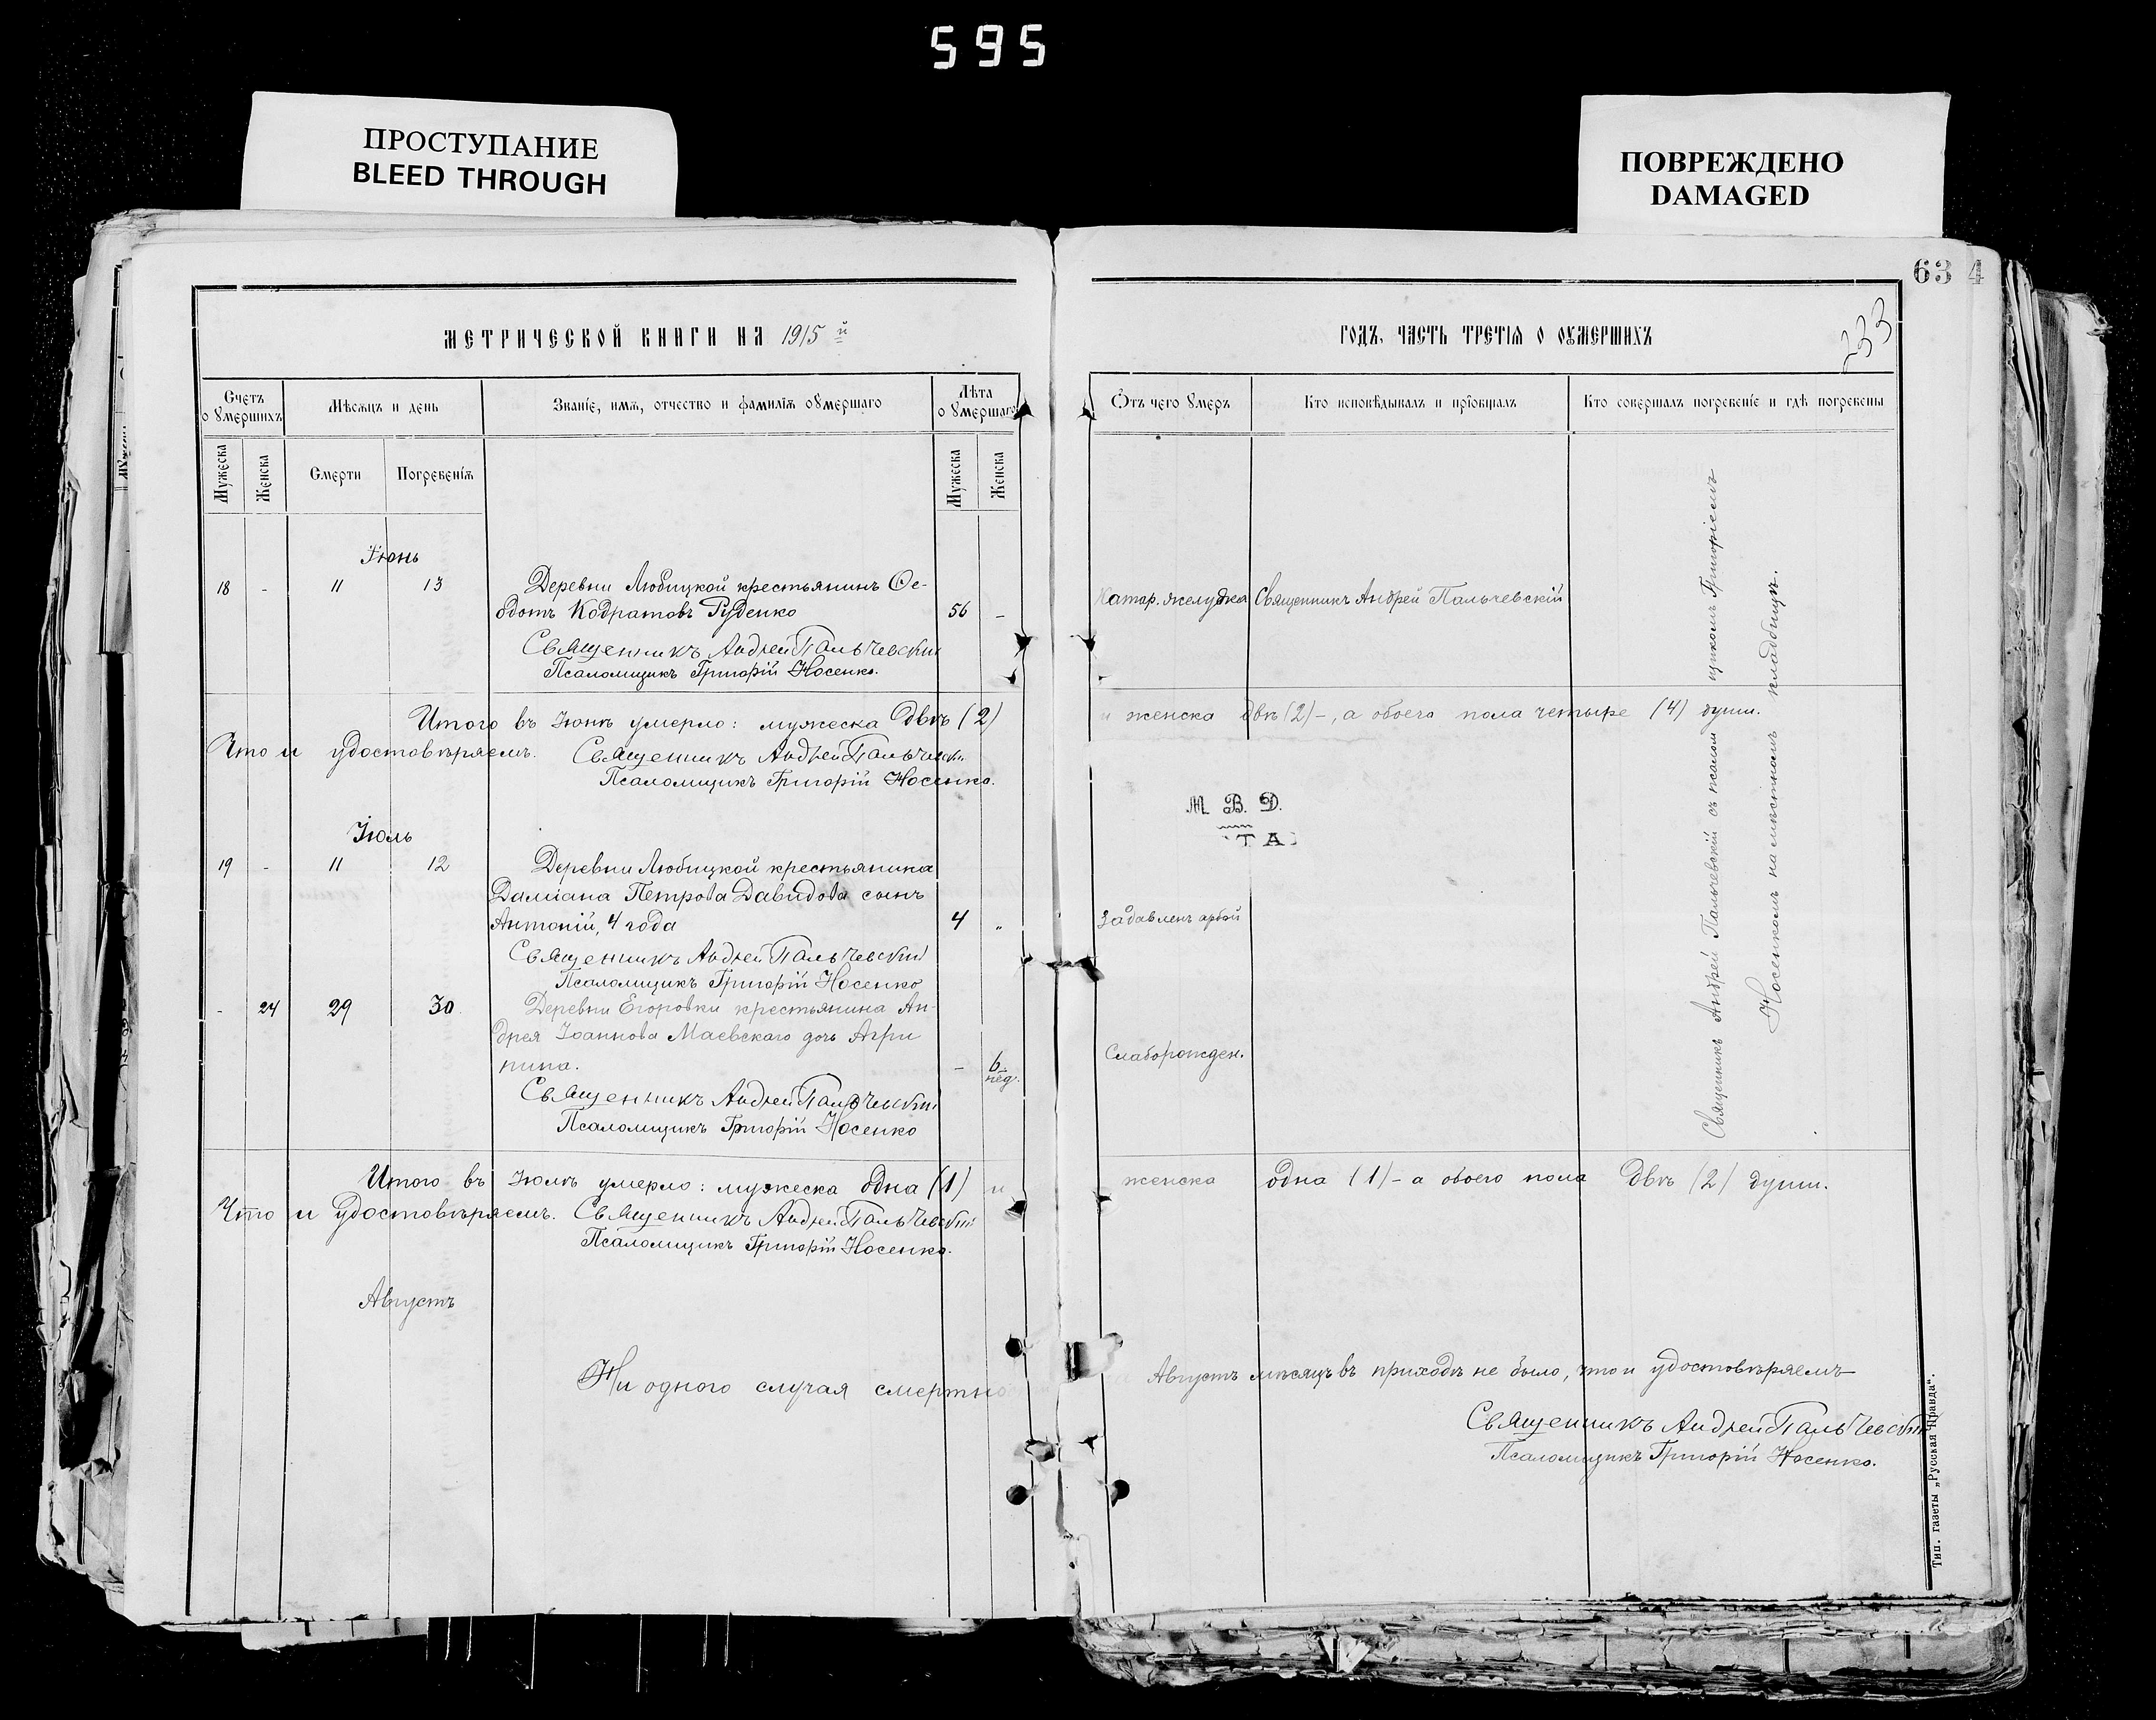 595
ПРОСТУПАНИЕ
BLEED THROUGH
ПОВРЕЖДЕНО
DAMAGED
63 4
233
МЕТРИЧЕСКОЙ КНИГИ НА 1915 й
ГОДЪ, ЧАСТЬ ТРЕТІЯ О ОУМЕРШИХЪ
Счетъ о умершихъ
Мѣсяцъ и день
Званіе, имя, отчество и фамилія оумершаго
Лѣта о умершаго
Отъ чего умеръ
Кто исповѣдывалъ и пріобщалъ
Кто совершалъ погребеніе и гдѣ погребены
Мужеска
Женска
Смерти
Погребенія
Мужеска
Женска
Іюнь
18 - 11 13 Деревни Любицкой крестьянинъ Ѳе-
одотъ Кодратовъ Руденко 56 - Катар. желудка Священникъ Андрей Пальчевскій
Священникъ Андрей Пальчевскій
Псаломщикъ Григорій Носенко.
Итого въ Іюнѣ умерло: мужеска двѣ (2) и женска двѣ (2) -, а обоего пола четыре (4) души.
Что и удостовѣряемъ. Священникъ Андрей Пальчевскій
Псаломщикъ Григорій Носенко.
М. В. Д.
ТА
Іюль
19 - 11 12 Деревни Любицкой крестьянина
Даміана Петрова Давидова сынъ
Антоній, 4 года 4 „ Задавленъ арбой
Священникъ Андрей Пальчевскій
Псаломщикъ Григорій Носенко
- 24 29 30 Деревни Егоровки крестьянина Ан-
дрея Іоаннова Маевскаго дочь Агри
пина. - 6 нед. Слаборожден.
Священникъ Андрей Пальчевскій
Псаломщикъ Григорій Носенко
Священникъ Андрей Пальчевскій съ псалом щикомъ Григоріемъ
Носенкомъ на мѣстномъ кладбищѣ.
Итого въ Іюлѣ умерло: мужеска одна (1) и женска одна (1) - а обоего пола двѣ (2) души.
Что и удостовѣряемъ. Священникъ Андрей Пальчевскій
Псаломщикъ Григорій Носенко.
Августъ
Ни одного случая смертно Августъ мѣсяцъ въ приходѣ не было, что и удостовѣряемъ
Священникъ Андрей Пальчевскій
Псаломщикъ Григорій Носенко.
Тип. газеты „Русская Правда“.